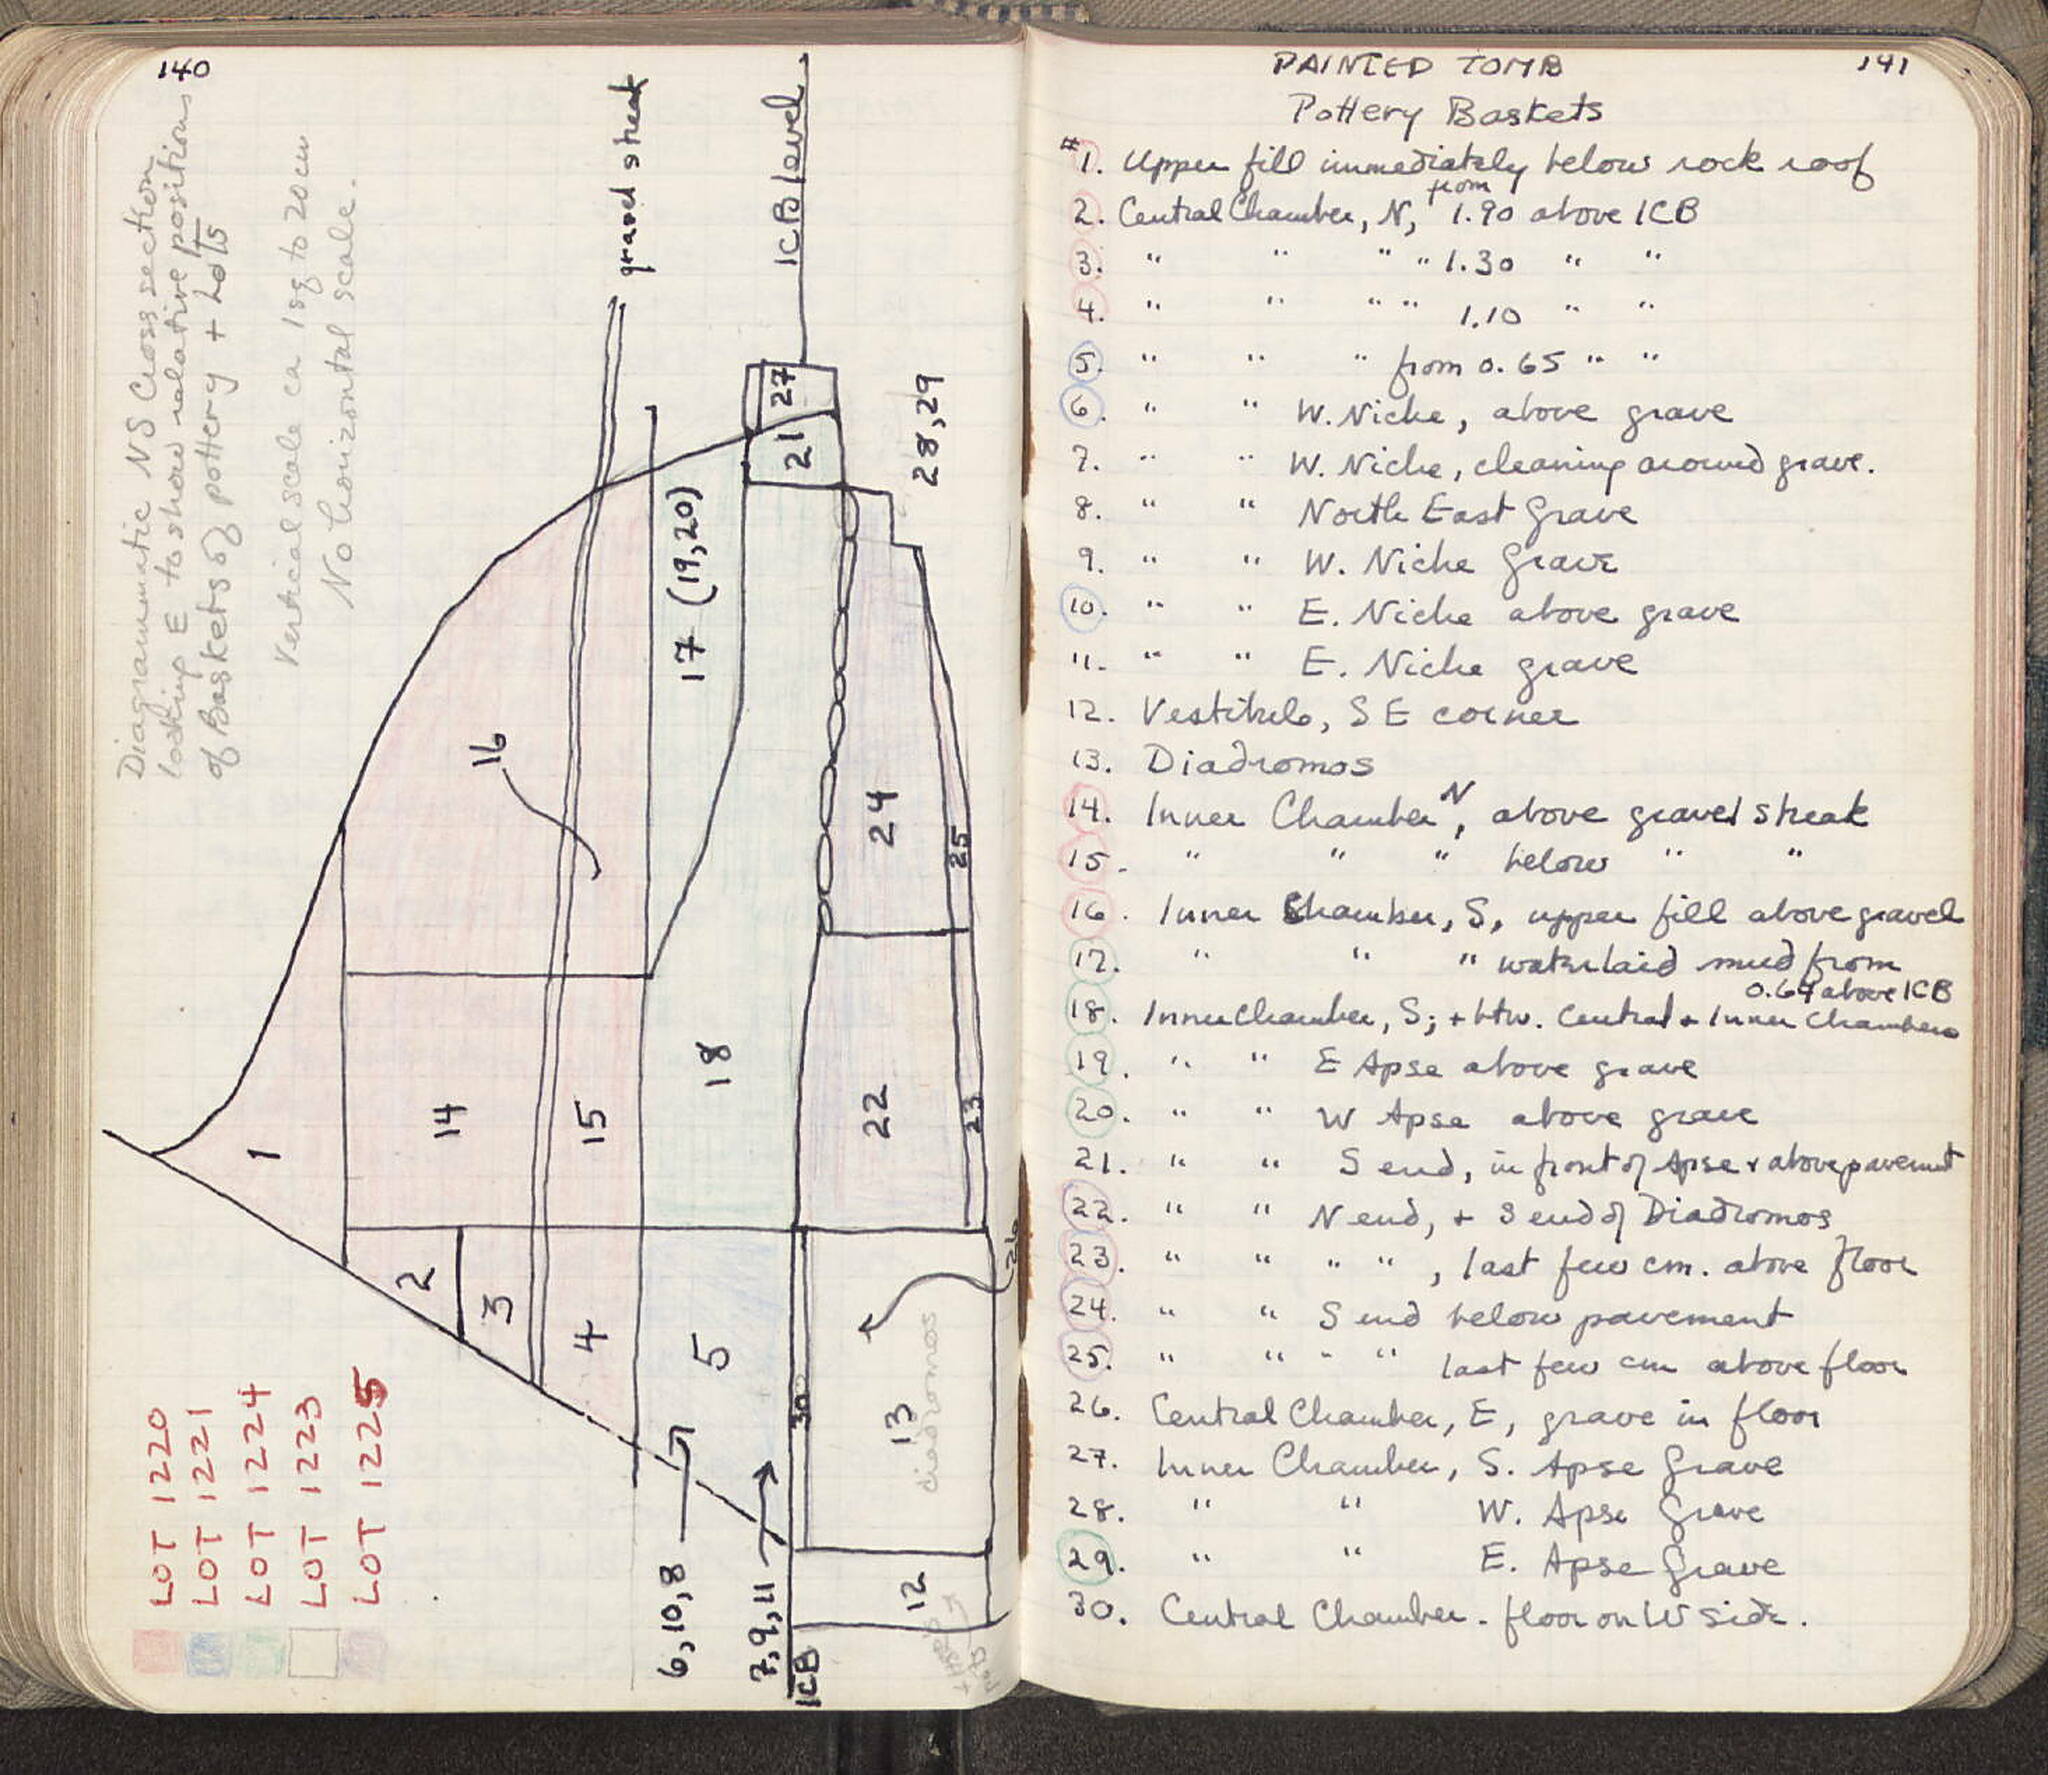 140
Diagrammatic NS Cross section
looking E to show relative positions
of Baskets of pottery + Lots
Vertical scale ca 1 sq to 20 cm
No horizontal scale.
gravel streak
ICB level
1
14
16
15
2
3
4
17 (19,20)
18
5
21
27
28, 29
24
25
22
23
26
30
13
diadromos
12
6, 10, 8
7, 9, 11
ICB
LOT 1220
LOT 1221
LOT 1224
LOT 1223
LOT 1225
141
PAINTED TOMB
Pottery Baskets
#1. Upper fill immediately below rock roof
2. Central Chamber, N, from 1.90 above ICB
3. " " " " 1.30 " "
4. " " " " 1.10 " "
5. " " " from 0.65 " "
6. " " W. Niche, above grave
7. " " W. Niche, cleaning around grave.
8. " " North East Grave
9. " " W. Niche Grave
10. " " E. Niche above grave
11. " " E. Niche grave
12. Vestibule, SE corner
13. Diadromos
14. Inner Chamber N, above gravel streak
15. " " " below " "
16. Inner Chamber, S, upper fill above gravel
17. " " " waterlaid mud from
0.64 above ICB
18. Inner Chamber, S; + btw. Central + Inner Chambers
19. " " E Apse above grave
20. " " W Apse above grave
21. " " S end, in front of Apse + above pavement
22. " " N end, + S end of Diadromos
23. " " " " , last few cm. above floor
24. " " S end below pavement
25. " " " " last few cm above floor
26. Central Chamber, E, grave in floor
27. Inner Chamber, S. Apse Grave
28. " " W. Apse Grave
29. " " E. Apse Grave
30. Central Chamber - floor on W side.